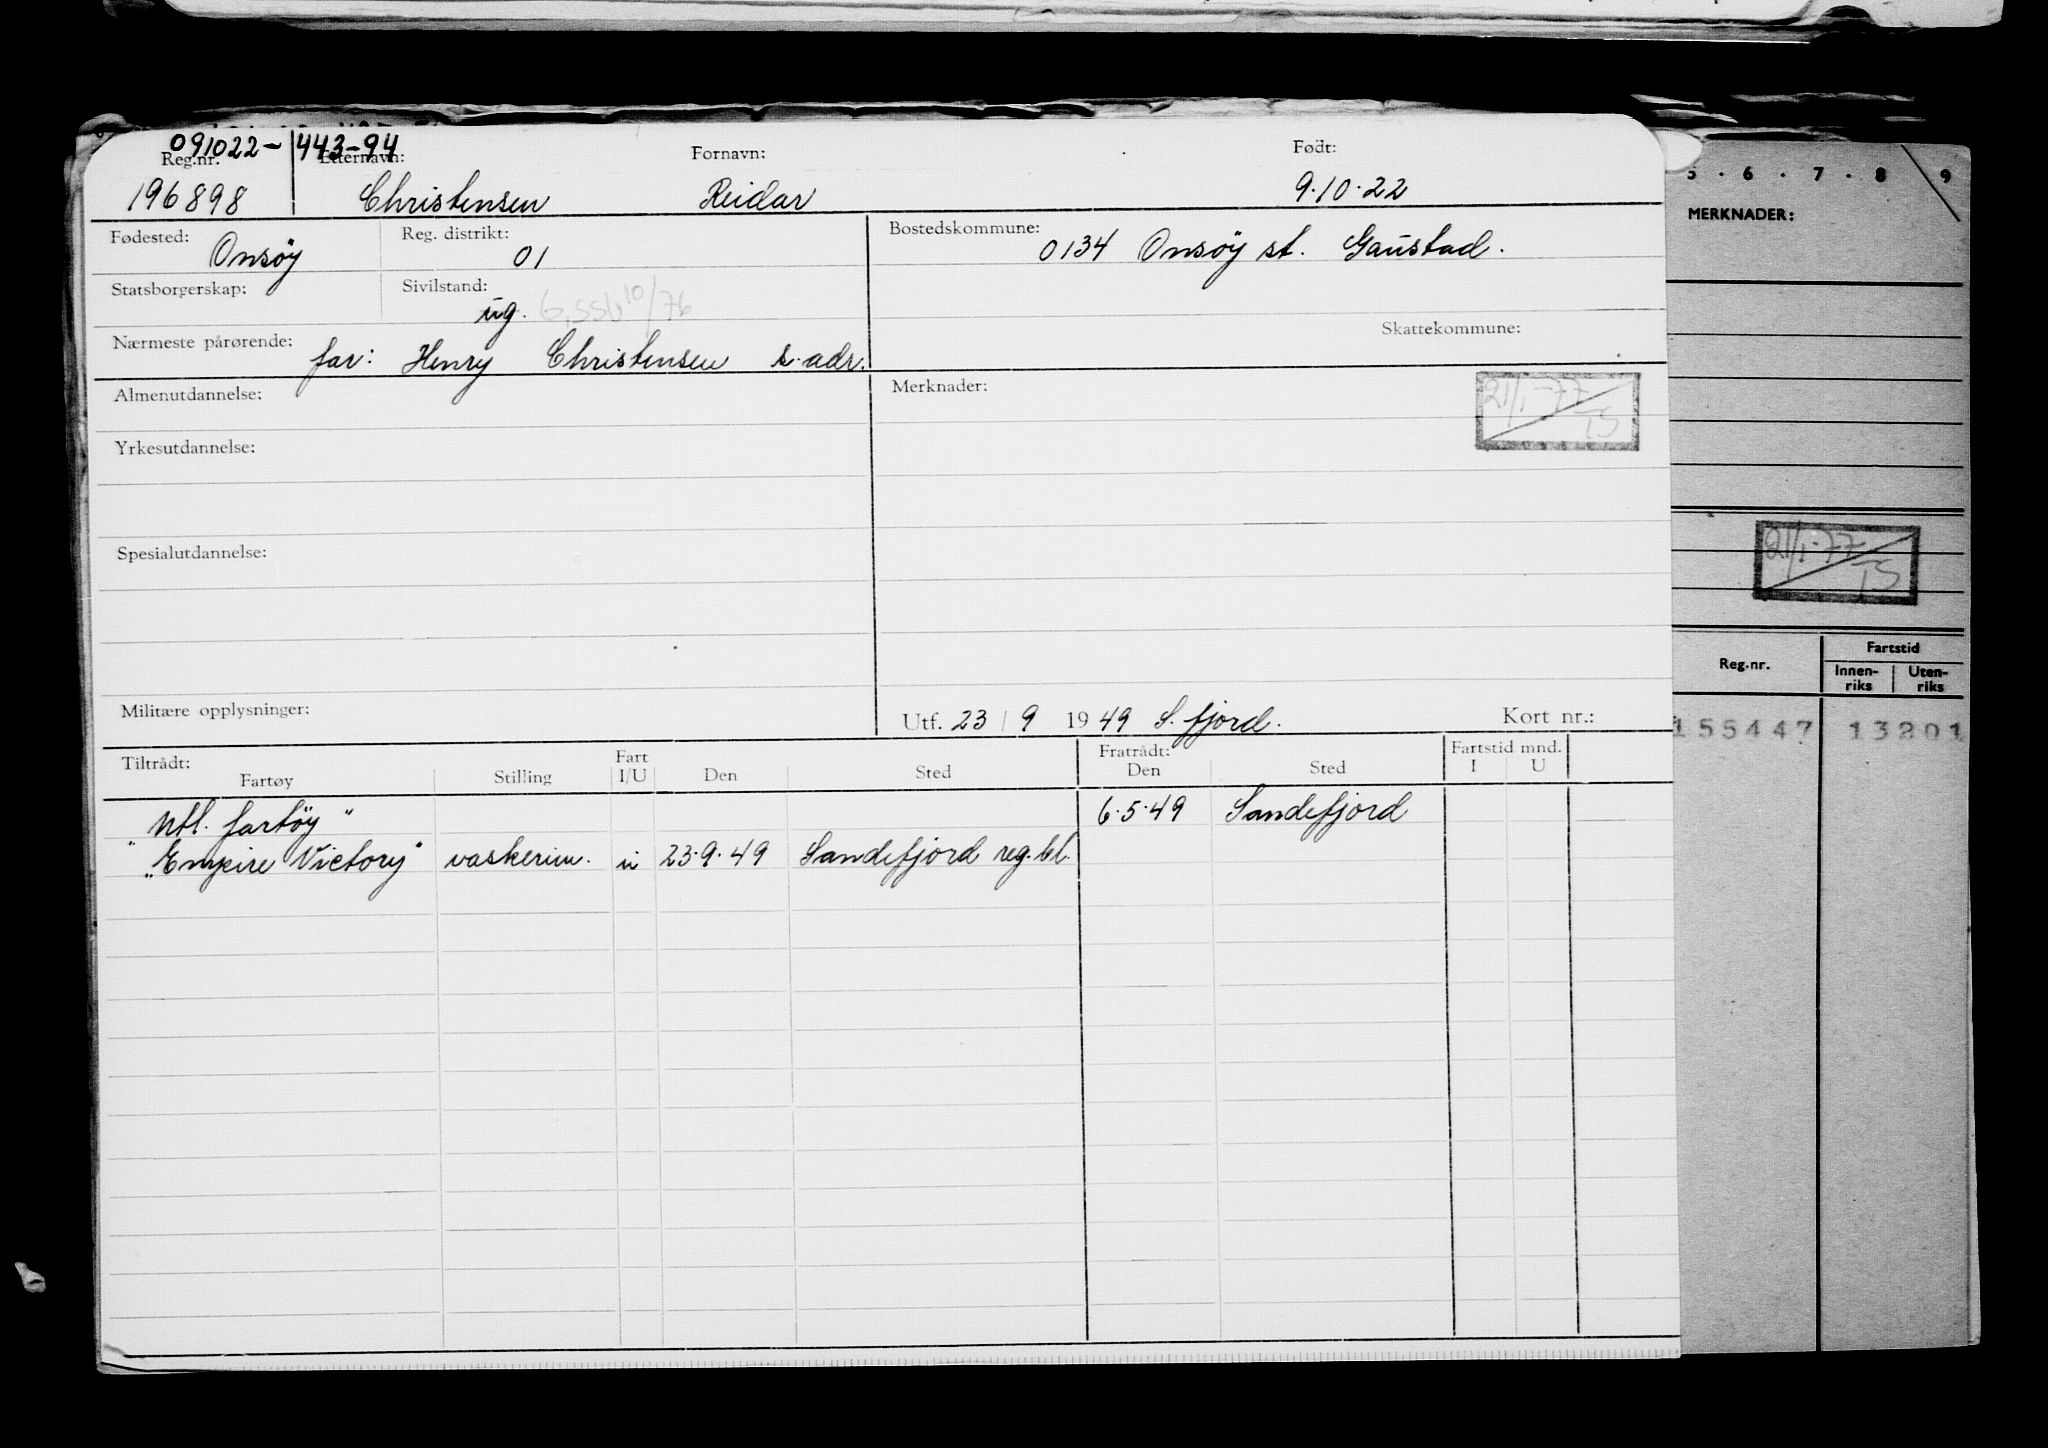 091022- 443-94
Reg.nr. Etternavn: Fornavn: Født:
196898 Christensen Reidar 9.10.22
Fødested: Onsöy Reg. distrikt: 01 Bostedskommune: 0134 Onsöy st. Gaustad.
Statsborgerskap: Sivilstand: ug.
10/76
Skattekommune:
Nærmeste pårørende: far: Henry Christensen s. adr.
Almenutdannelse: Merknader:
21/1-77
TS
Yrkesutdannelse:
Spesialutdannelse:
Militære opplysninger: Utf. 23/9 1949 S. fjord. Kort nr.:
Tiltrådt: Fart Fratrådt: Fartstid mnd.
Fartøy Stilling I/U Den Sted Den Sted I U
"Utl. fartöy" 6.5.49 Sandefjord
"Empire Victory" vaskerim. u 23.9.49 Sandefjord reg.bl.
5 . 6 . 7 . 8 9
MERKNADER:
21/1-77
TS
Reg.nr. Fartstid
Innen-riks Uten-riks
155447 13201